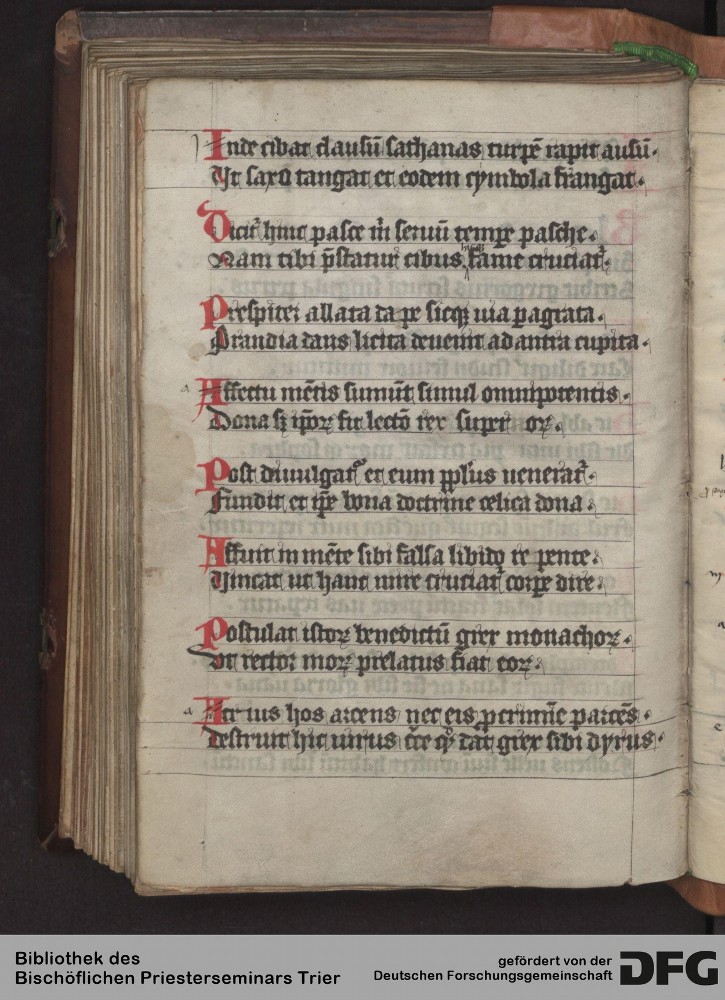 Inde cibat clausū sathanas turpē rapit ausū.
Vt saxo tangat et eodem cymbola frangat.
Dicit hunc pasce m̄ seruū tempe pasche.
Nam tibi p̄statur cibus fame cruciat.
Prespiter allata dape sicq; uia pagrata.
Prandia dans licita deuenit ad antra cupita.
a Affectu mētis sumūt simul omnipotentis.
Dona sʒ ip̄oꝝ fit lectō rex supri oꝝ.
Post diuulgat et eum pplus uenerat.
Fundit et ip̄e bona doctrine celica dona.
Affuit in mēte sibi falsa libido re pente.
Vincat ut hanc mire cruciat corpe dire.
Postulat istoꝝ benedictū grex monachoꝝ.
Vt rector moꝝ prelatus fiat eoꝝ.
a Acr ius hos arcens nec eis p crimīe parcēs.
Destruit hic uirus ēē qd dat grex sibi dyrus.
Bibliothek des
Bischöflichen Priesterseminars Trier
gefördert von der
Deutschen Forschungsgemeinschaft
DFG